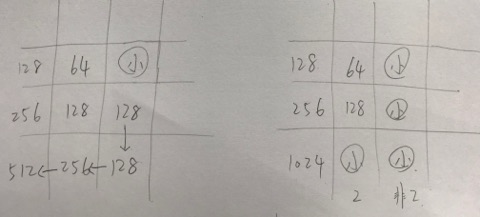 128 64 小
256 128 128
↓
512←256←128
128 64 小
256 128 小
1024 小 小
2 非2